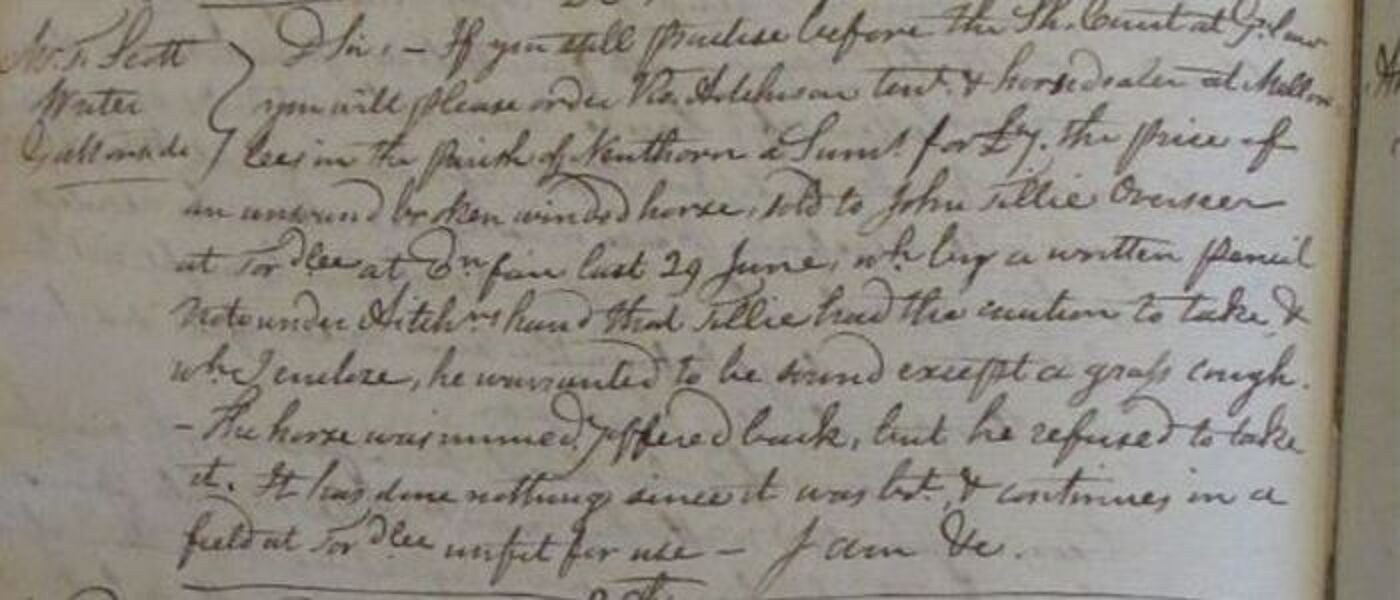 Mr. T. Scott
Writer
Gattonside
D Sir, – If you still practise before the Sh. Court at G. Law
you will please order Ro. Aitchison tent. & horsedealer at Mellon
lees in the parish of Nenthorn a Sums. for £7. the price of
an unsound broken winded horse, sold to John Tillie Overseer
at Tordlee at Dn fair last 29 June, wh. by a written pencil
note under Aitchns hand that Tillie had the caution to take &
wh. I enclose, he warranted to be sound except a grass cough.
– The horse was immedy. offered back, but he refused to take
it. It has done nothing since it was bot. & continues in a
field at Tordlee unfit for use – I am &c.